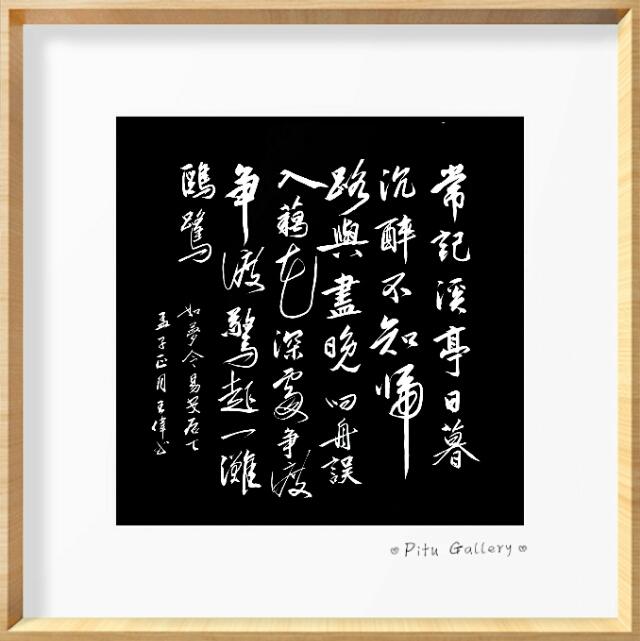 常記溪亭日暮
沉醉不知歸
路興盡晚回舟誤
入藕花深處爭渡
爭渡驚起一灘
鷗鷺
如夢令易安居士
子正月王偉书
Pitu Gallery